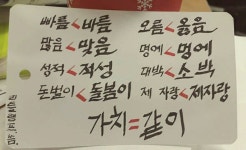 빠름<바름 오름<옳음
많음<맑음 명예<멍에
성적<적성 대박<소박
돈벌이<돌봄이 제 자랑<제자랑
가치=같이